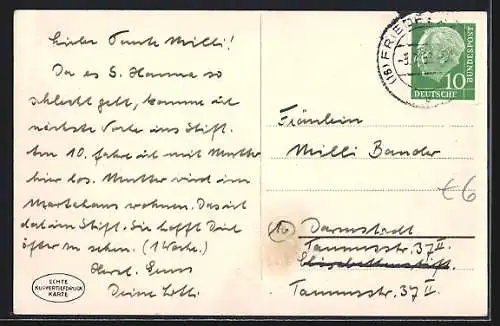 Liebe Tante Milli!
Da es S. Hanna so
schlecht geht, komme ich
nächste Woche ins Stift.
Am 10. fahre ich mit Mutter
hier los. Mutter wird im
Marthahaus wohnen. Das ist
dicht am Stift. Sie hofft Dich
öfter zu sehen. (1 Woche.)
Herzl. Gruss
Deine Lotti.
ECHTE
KUPFERTIEFDRUCK
KARTE
(16) FRIEDB
10
DEUTSCHE
BUNDESPOST
Fräulein
Milli Bander
€6
16 Darmstadt
Taunusstr. 37 II
Elisabethenstift.
Taunusstr. 37 II